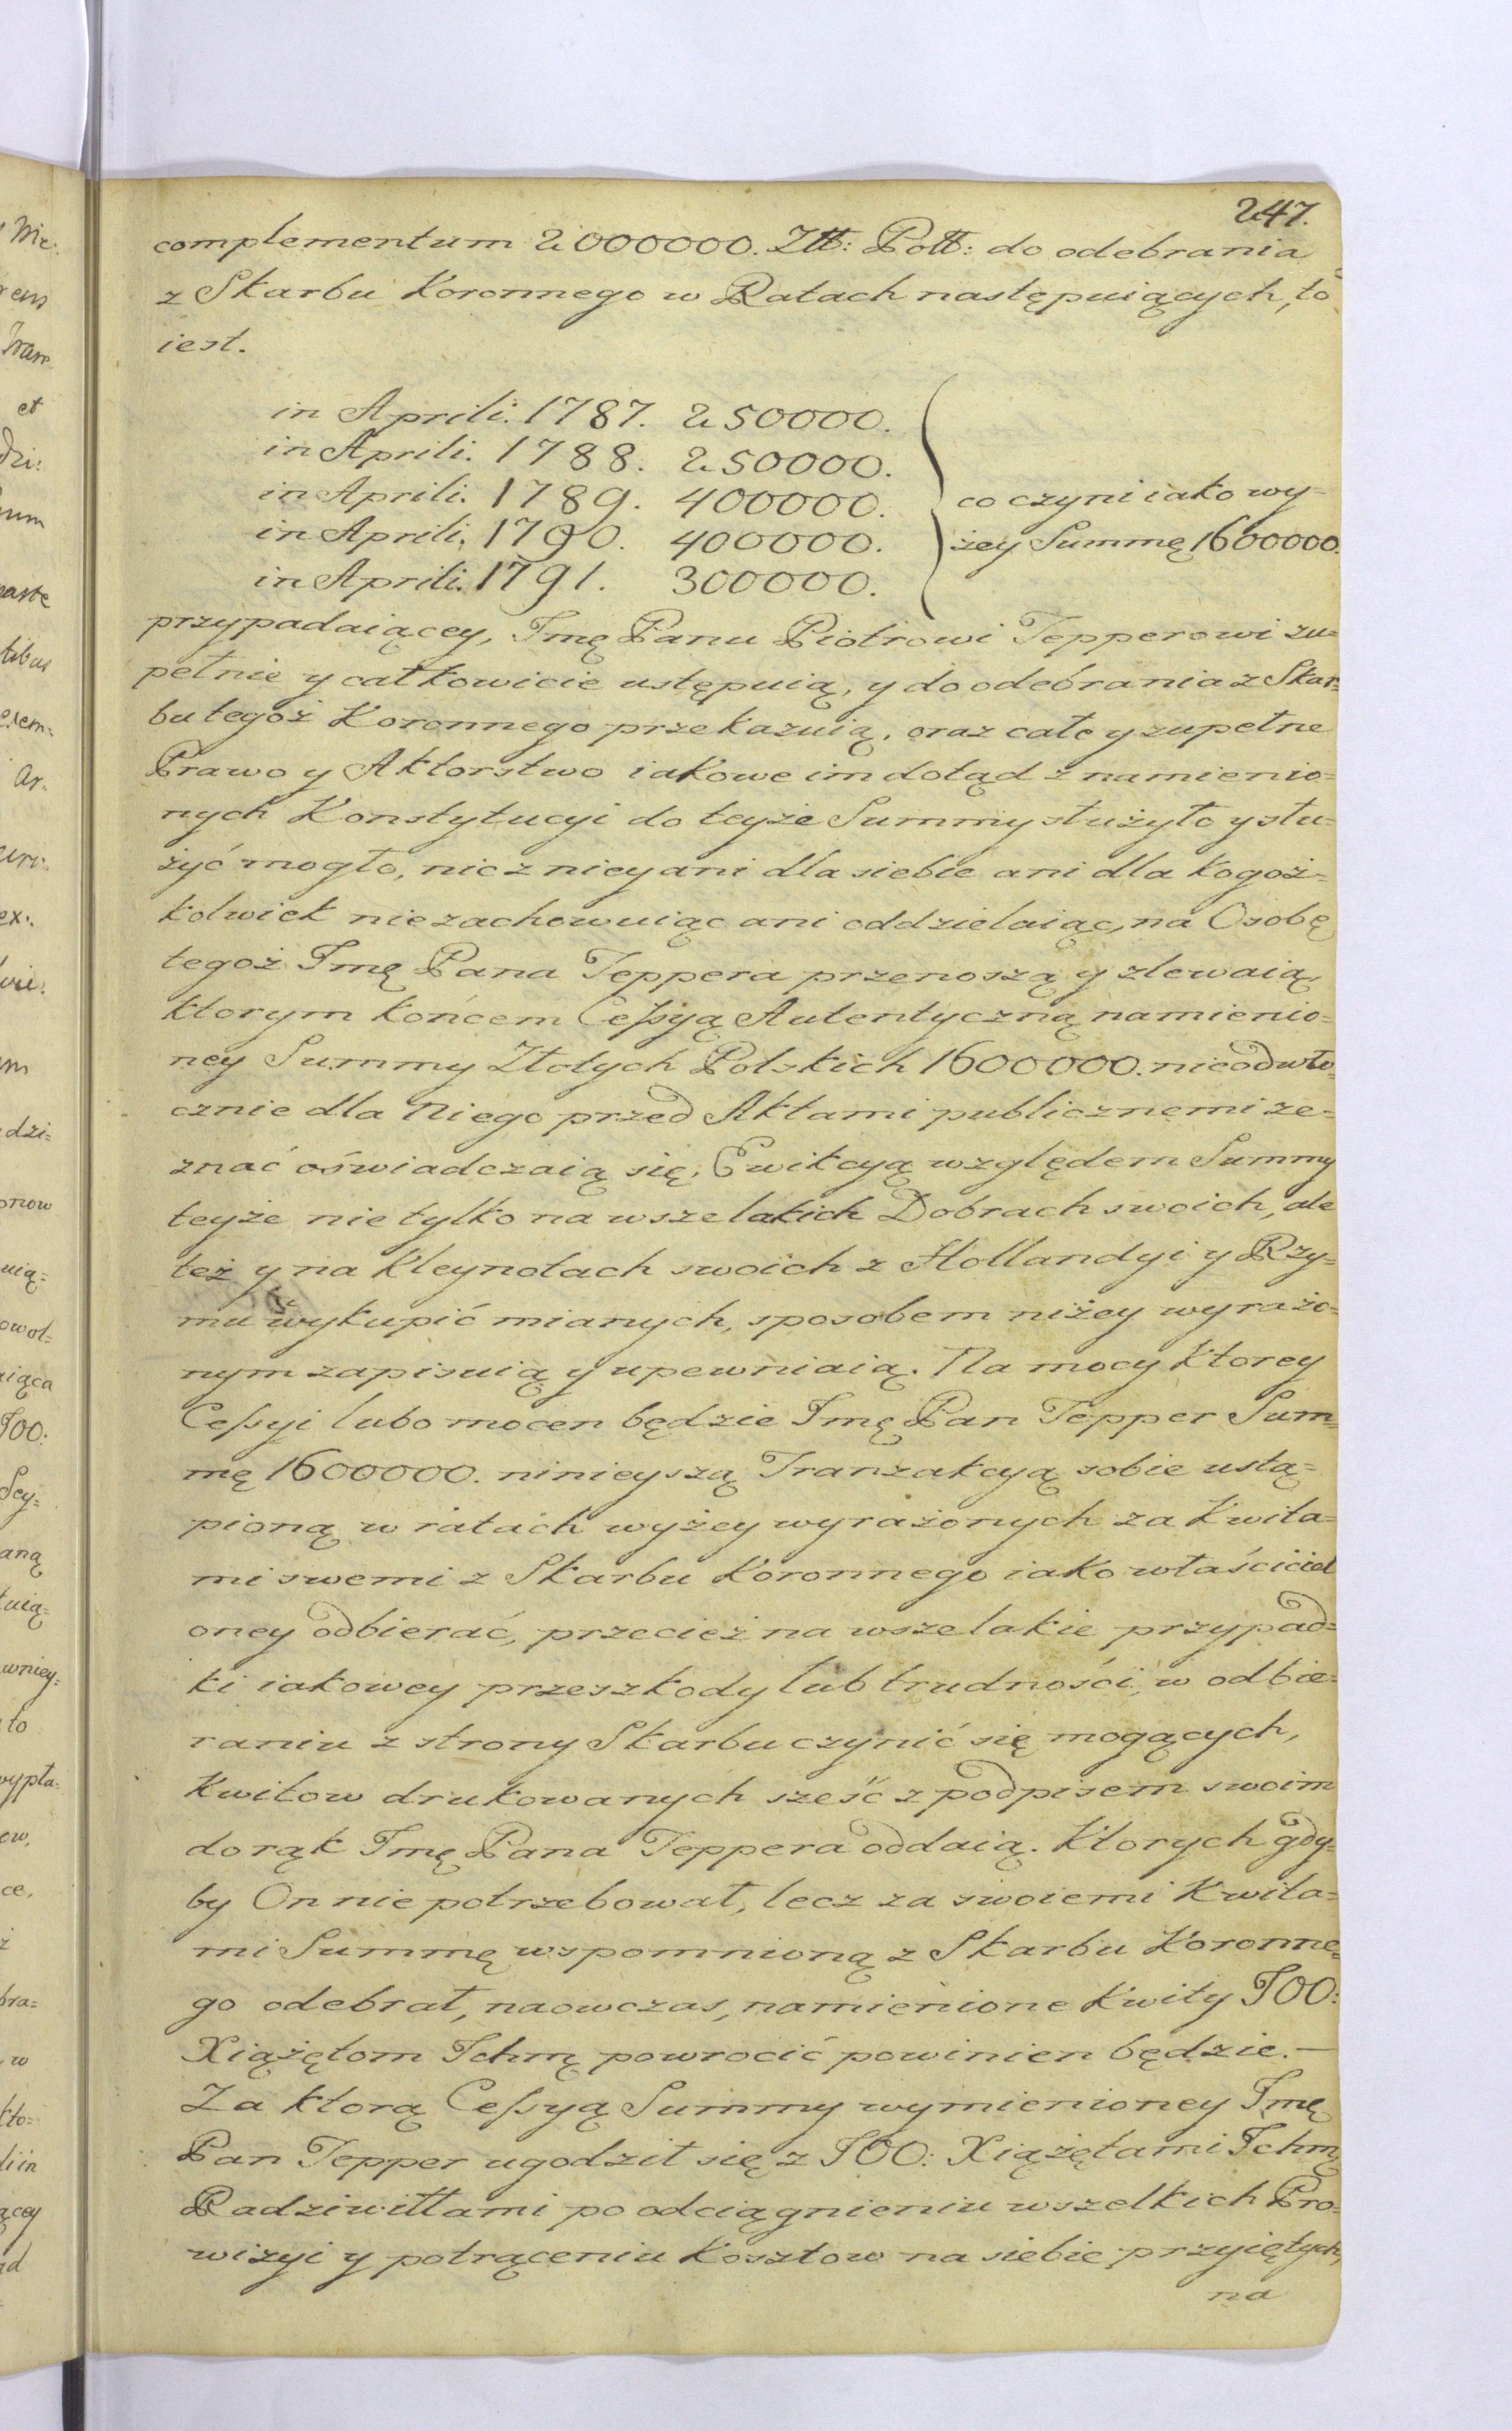 247.
complementum 2000000. Złł: Poll: do odebrania
z Skarbu Koronnego w Ratach następuiących, to
iest.
in Aprili. 1787. 250000.
in Aprili. 1788. 250000.
in Aprili. 1789. 400000.
in Aprili. 1790. 400000.
in Aprili. 1791. 300000.
co czyni iako wy-
żey Summę 1600000.
przypadaiącey, Jmę Panu Piotrowi Tepperowi zu=
pełnie y całkowicie ustępuią, y do odebrania z Skar=
bu tegoż Koronnego przekazuią, oraz całe y zupełne
Prawo y Aktorstwo iakowe im dotąd z namienio=
nych Konstytucyi do teyże Summy służyło y słu=
żyć mogło, nic z niey ani dla siebie ani dla kogoż=
kolwiek nie zachowuiąc ani oddzielaiąc, na Osobę
tegoż Jmę Pana Teppera przenoszą y zlewaią,
ktorym końcem Cessyą Autentyczną namienio=
ney Summy Złotych Polskich 1600000. nieodwło=
cznie dla Niego przed Aktami publicznemi ze=
znać oświadczaią się, Ewikcyą względem Summy
teyże nie tylko na wszelakich Dobrach swoich, ale
też y na Kleynotach swoich z Hollandyi y Rzy=
mu wykupić mianych, sposobem niżey wyrażo=
nym zapisuią y upewniaią. Na mocy ktorey
Cessyi lubo mocen będzie Jmę Pan Tepper Sum=
mę 1600000. ninieyszą Tranzakcyą sobie ustą=
pioną w ratach wyżey wyrażonych za Kwita=
mi swemi z Skarbu Koronnego iako właściciel
oney odbierać, przecież na wszelakie przypad=
ki iakowey przeszkody lub trudności, w odbie=
raniu z strony Skarbu czynić się mogących,
Kwitow drukowanych sześć z podpisem swoim
do rąk Jmę Pana Teppera oddaią. Ktorych gdy=
by On nie potrzebował, lecz za swoiemi Kwita=
mi Summę wspomnioną z Skarbu Koronne=
go odebrał, naowczas, namienione Kwity JOO:
Xiążętom Jchmę powrocić powinien będzie.—
Za ktorą Cessyą Summy wymienioney Jmę
Pan Tepper ugodził się z JOO: Xiążętami Jchmę
Radziwiłłami po odciągnieniu wszelkich Pro=
wizyi y potrąceniu Kosztow na siebie przyiętych,
na